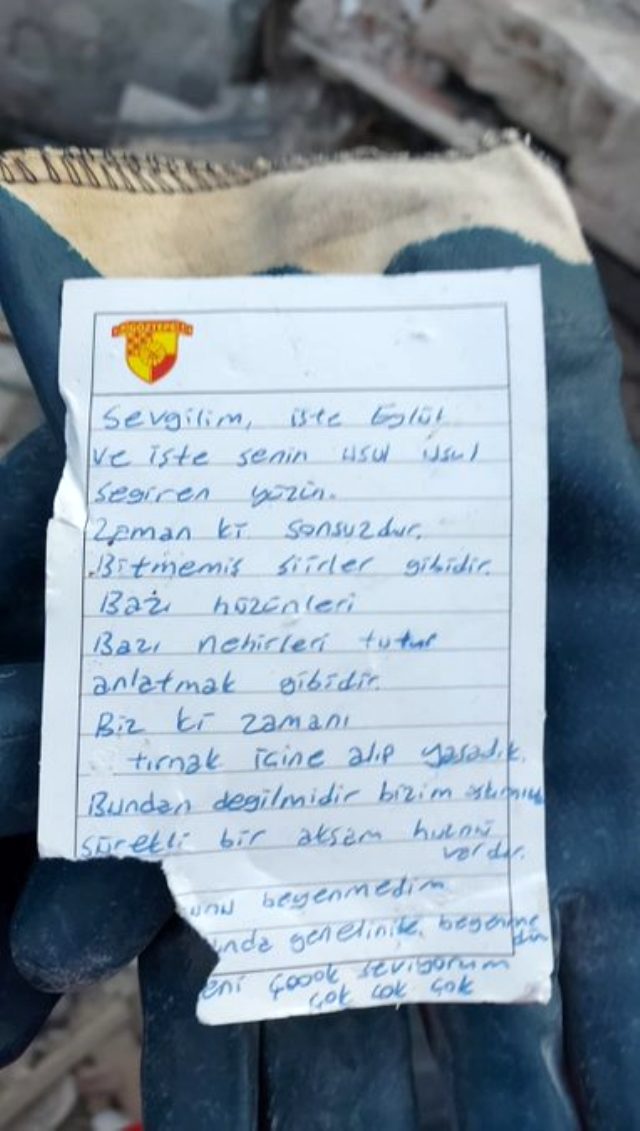 GÖZTEPE
Sevgilim, işte Eylül
ve işte senin usul usul
segiren yüzün.
Zaman ki sonsuzdur.
Bitmemiş şiirler gibidir.
Bazı hüzünleri
Bazı nehirleri tutup
anlatmak gibidir.
Biz ki zamanı
tırnak içine alıp yaşadık.
Bundan değilmidir bizim aşkımızın
sürekli bir akşam hüznü
vardır.
unu beğenmedim
unda genelinike beğenme
dim
eni çoook seviyorum
çok çok çok